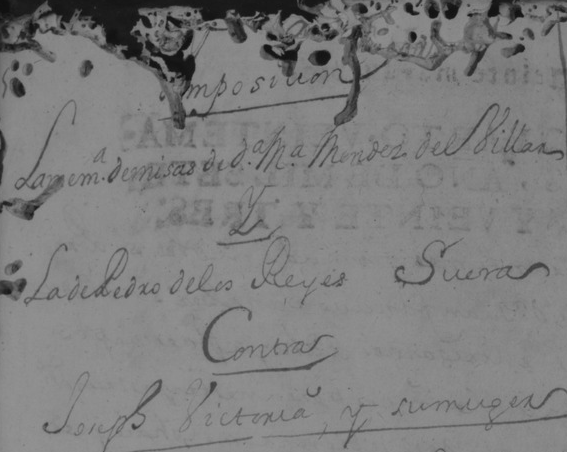 Imposicion
La mem.a de misas de d.a M.a Mendez del Villar
Y
La de Pedro de los Reyes Suera
Contra
Joseph Victoria, y su muger